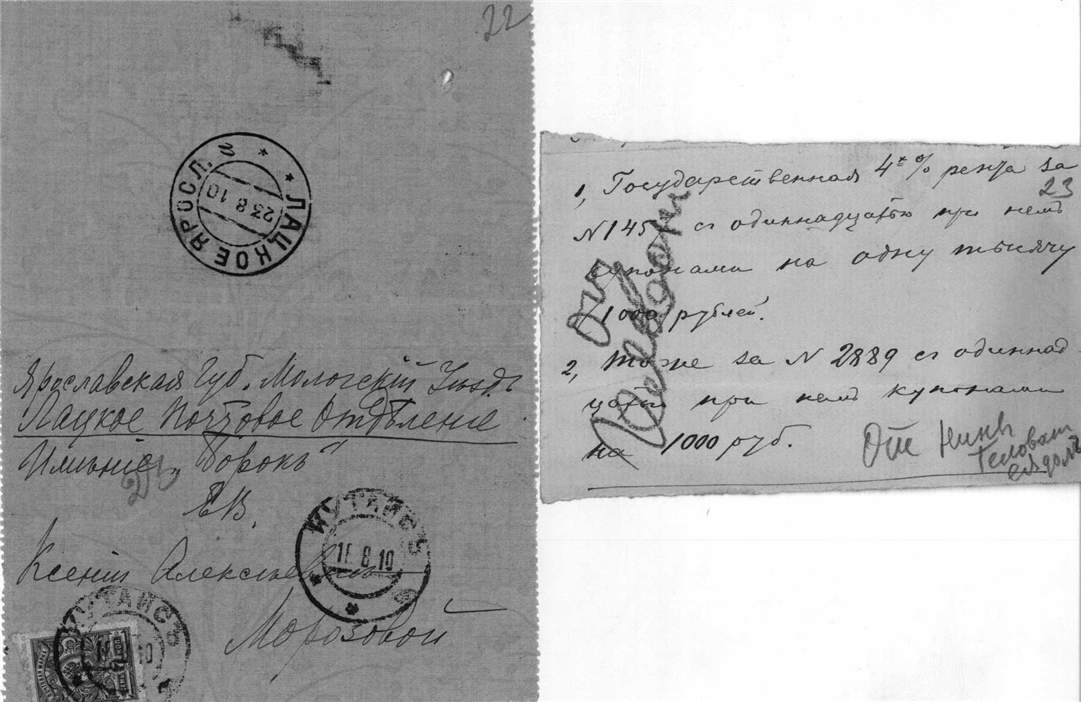 22
ЛАЦКОЕ ЯРОСЛ. а
23 8 10
Ярославская Губ. Мологскій Уѣздъ
Лацкое Почтовое Отдѣленіе
Имѣніе „Борокъ"
Е.В.
КУТАИСЪ
11 8 10
Ксеніи Алексѣевнѣ
Морозовой
КУТАИСЪ
10
23
1, Государственная 4% рента за
N 145 съ одиннадцатью при немъ
купонами на одну тысячу
1000 рублей.
2, Тоже за N 2889 съ одиннад
цатью при немъ купонами
на 1000 руб.
От Нины